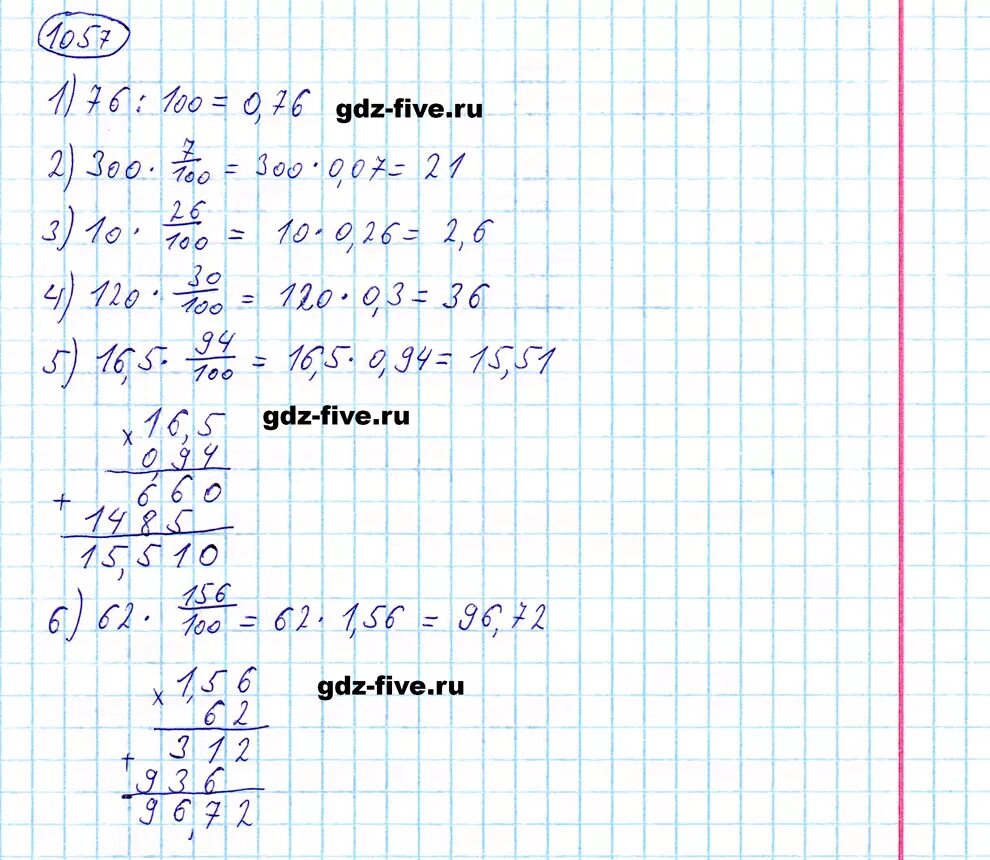 1057
1) 76 : 100 = 0,76 gdz-five.ru
2) 300 · 7/100 = 300 · 0,07 = 21
3) 10 · 26/100 = 10 · 0,26 = 2,6
4) 120 · 30/100 = 120 · 0,3 = 36
5) 16,5 · 94/100 = 16,5 · 0,94 = 15,51
× 16,5 gdz-five.ru
0,94
+ 660
1485
15,510
6) 62 · 156/100 = 62 · 1,56 = 96,72
× 1,56 gdz-five.ru
62
+ 312
936
96,72